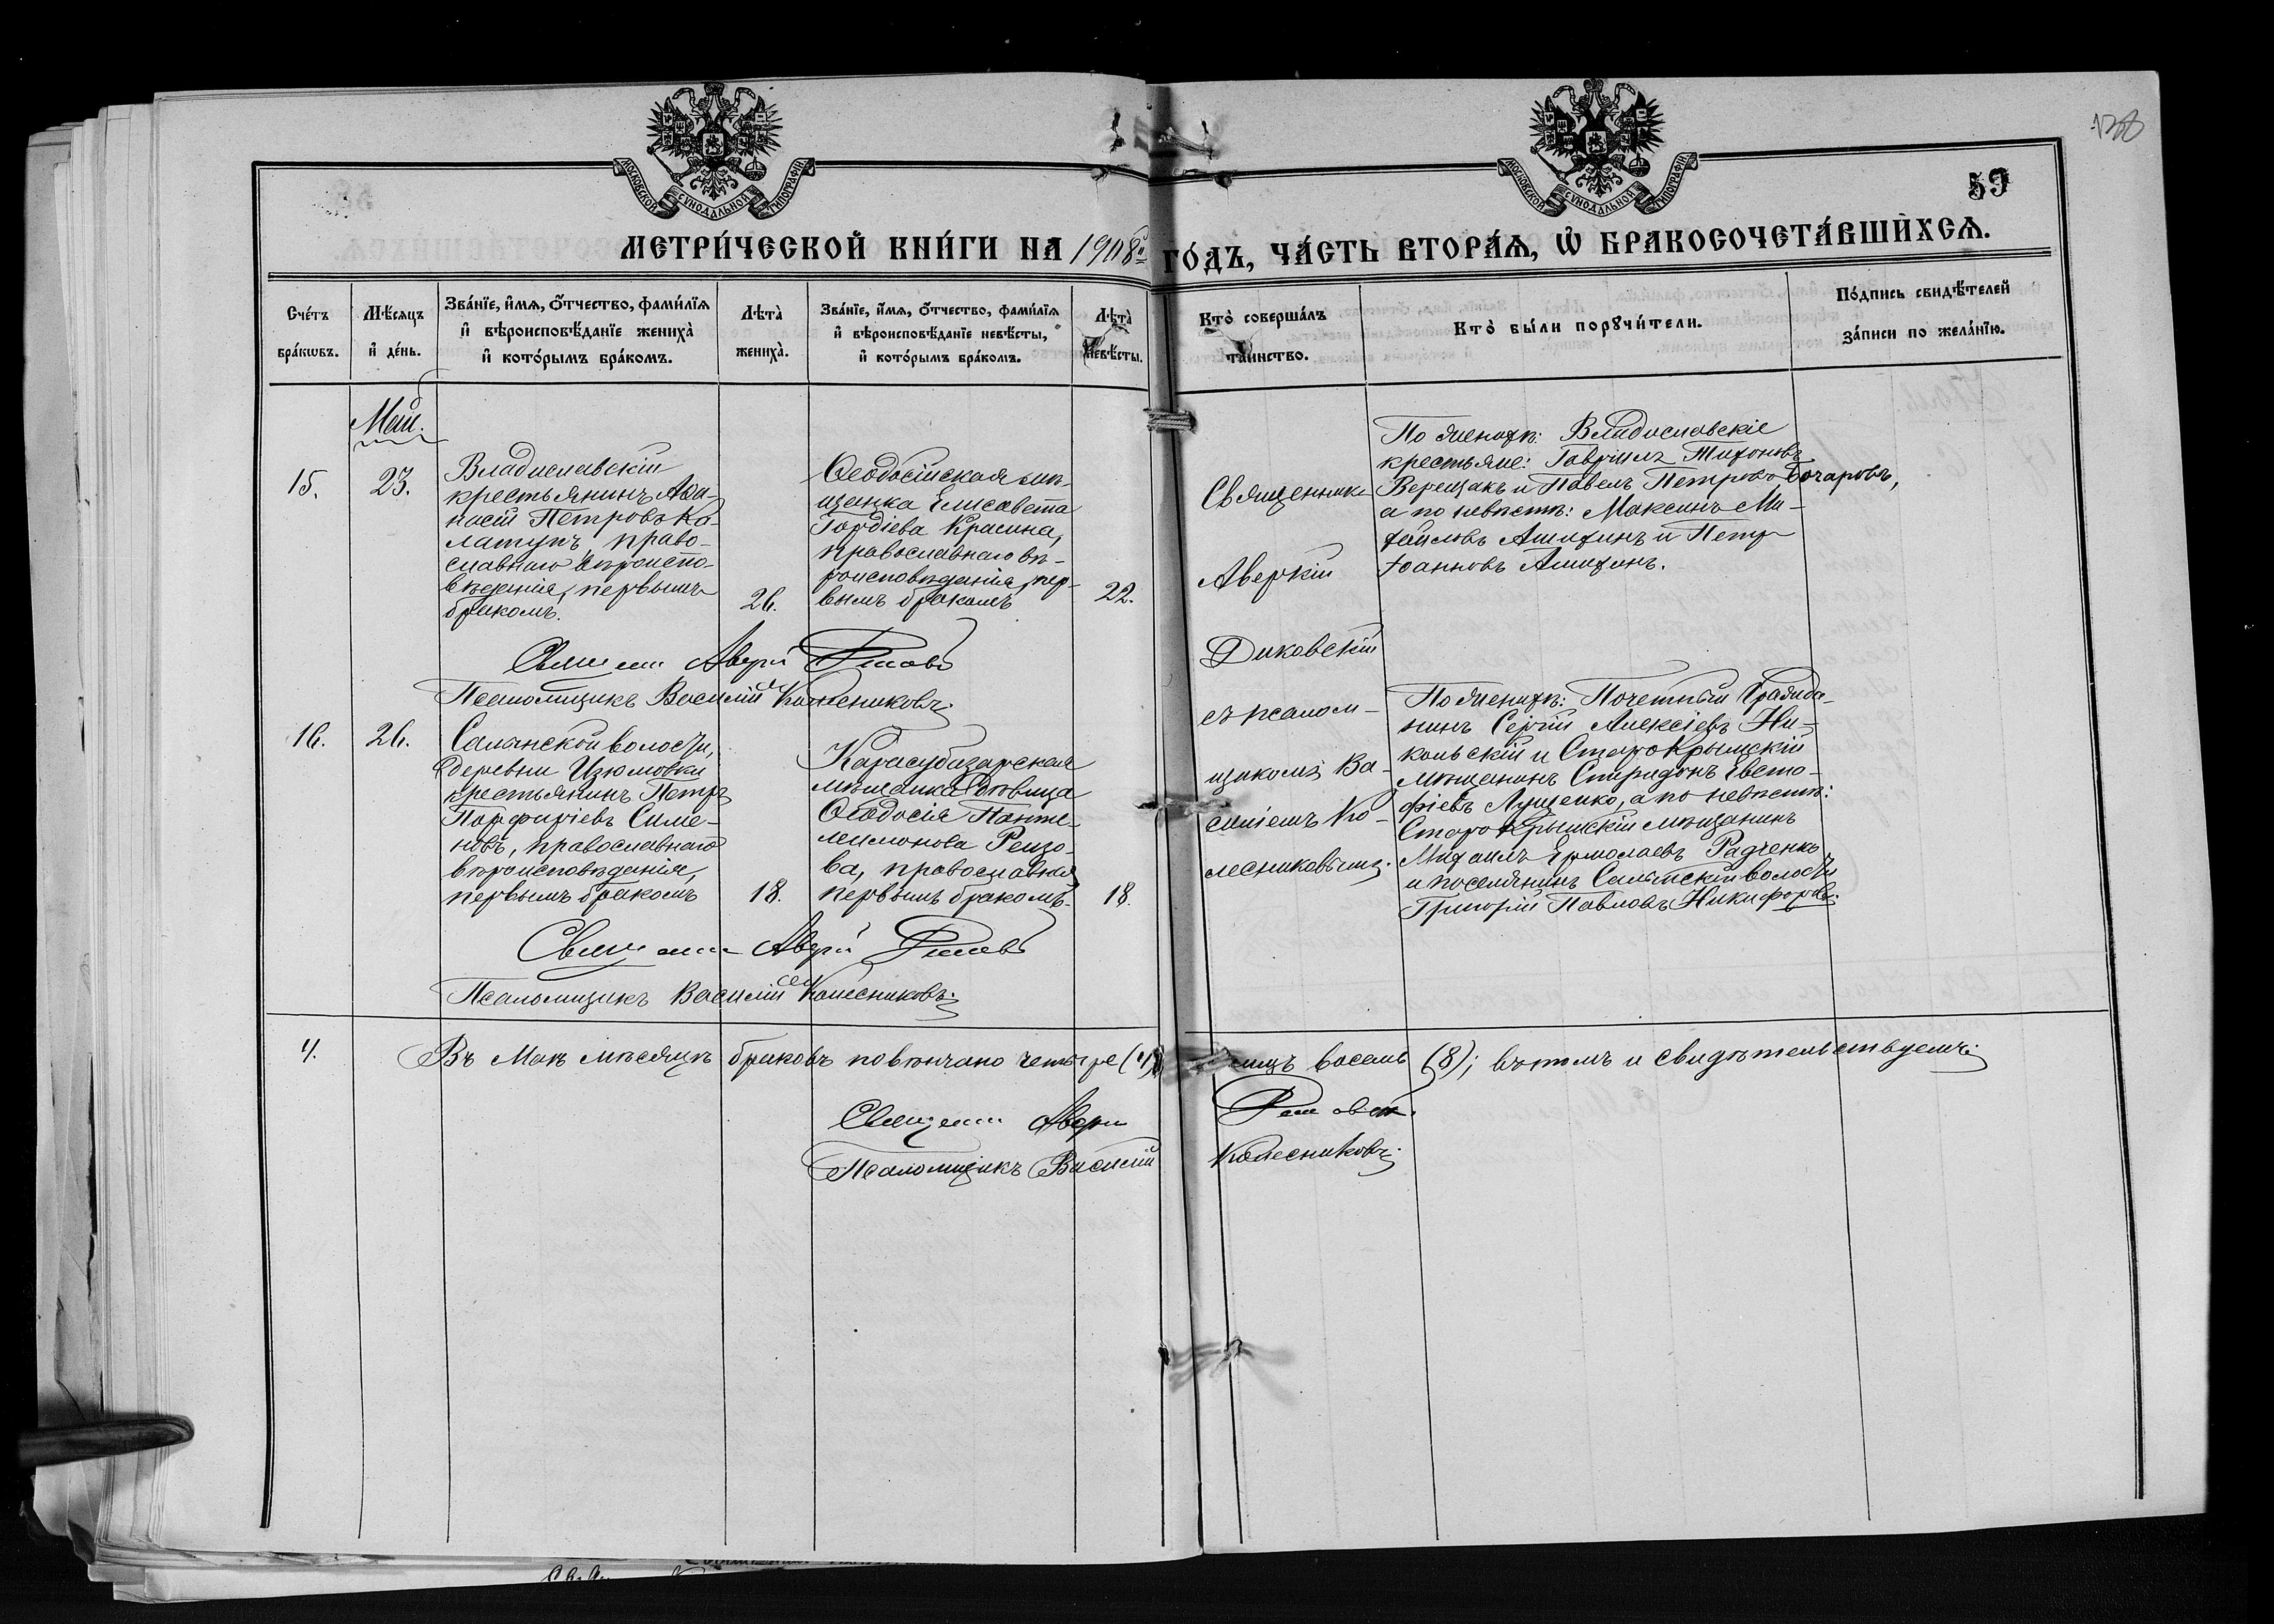 МОСКОВСКОЙ СѴНОДАЛЬНОЙ ТИПОГРАФІИ
МОСКОВСКОЙ СѴНОДАЛЬНОЙ ТИПОГРАФІИ
59
МЕТРИ́ЧЕСКОЙ КНИ́ГИ НА 1908й ГО́ДЪ, ЧА́СТЬ ВТОРА́Ѧ, Ѡ БРАКОСОЧЕТА́ВШИХСѦ.
Сче́тъ бра́кѡвъ.
Мѣ́сѧцъ и де́нь.
Зва́нїе, и́мѧ, о́тчество, фами́лїѧ
и вѣроисповѣ́данїе жениха̀
и кото́рымъ бра́комъ.
Лѣта̀ жениха̀.
Зва́нїе, и́мѧ, о́тчество, фами́лїѧ
и вѣроисповѣ́данїе невѣ́сты,
и кото́рымъ бра́комъ.
Лѣта̀ невѣ́сты.
Кто̀ соверша́лъ
та́инство.
Кто̀ бы́ли порꙋчи́тели.
По́дпись свидѣ́телей
за́писи по жела́нїю.
Май.
15.
23.
Владиславскій
крестьянинъ Аѳа-
насій Петровъ Ка-
латунъ, право-
славнаго вѣроиспо-
вѣданія, первымъ
бракомъ.
26.
Ѳеодосійская мѣ-
щанка Елисавета
Гордіева Красина,
православнаго вѣ-
роисповѣданія, пер-
вымъ бракомъ
22.
Священникъ
Аверкій
Диковскій
съ псалом-
щикомъ Ва-
силіемъ Ко-
лесниковымъ.
По женихѣ: Владиславскіе
крестьяне: Гавріилъ Тихоновъ
Верещакъ и Павелъ Петровъ Бочаровъ,
а по невѣстѣ: Максимъ Ми-
хайловъ Анихинъ и Петръ
Іоанновъ Анихинъ.
Псаломщикъ Василій Колесниковъ
16.
26.
Салынской волости,
деревни Изюмовки
крестьянинъ Петръ
Порфиріевъ Симо-
новъ, православнаго
вѣроисповѣданія,
первымъ бракомъ
18.
Карасубазарская
мѣщанка дѣвица
Ѳеодосія Панте-
леимонова Ренцо-
ва, православная
первымъ бракомъ.
18.
По женихѣ: Почетный Гражда-
нинъ Сергій Алексіевъ Ни-
кольскій и Старокрымскій
мѣщанинъ Спиридонъ Евста-
фіевъ Лущенко, а по невѣстѣ:
Старокрымскій мѣщанинъ
Михаилъ Ермолаевъ Радченко
и поселянинъ Салынской волости
Григорій Павловъ Никифоровъ.
Псаломщикъ Василій Колесниковъ
4.
Въ Маѣ мѣсяцѣ браковъ повѣнчано четыре (4) лицъ восемь (8); въ томъ и свидѣтельствуемъ:
Псаломщикъ Василій Колесниковъ